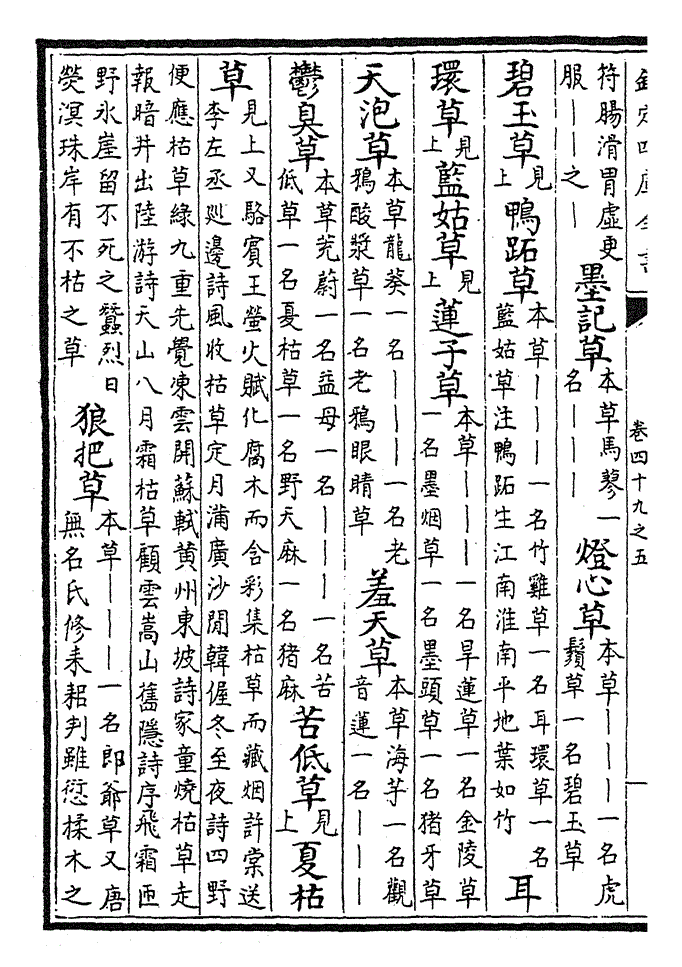 欽定四庫全書
卷四十九之五
一
符腸滑胃虛更服丨丨之丨 墨記草 本草馬蓼一名丨丨丨 燈心草 本草丨丨丨一名虎鬚草一名碧玉草
碧玉草 見上 鴨跖草 本草丨丨丨一名竹雞草一名耳環草一名藍姑草注鴨跖生江南淮南平地葉如竹 耳
環草 見上 藍姑草 見上 蓮子草 本草丨丨丨一名旱蓮草一名金陵草一名墨烟草一名墨頭草一名猪牙草
天泡草 本草龍葵一名丨丨丨一名老鴉酸漿草一名老鴉眼睛草 羞天草 本草海芋一名觀音蓮一名丨丨丨
鬱臭草 本草茺蔚一名益母一名丨丨丨一名苦低草一名夏枯草一名野天麻一名猪麻 苦低草 見上 夏枯
草 見上又駱賓王螢火賦化腐木而含彩集枯草而藏烟許棠送李左丞廵邊詩風收枯草定月滿廣沙閒韓偓冬至夜詩四野
便應枯草綠九重先覺凍雲開蘇軾黄州東坡詩家童燒枯草走報暗井出陸游詩天山八月霜枯草顧雲嵩山舊隱詩序飛霜匝
野氷崖留不死之蠶烈日熒溟珠岸有不枯之草 狼把草 本草丨丨丨一名郎爺草又唐無名氏修耒耜判雖愆揉木之